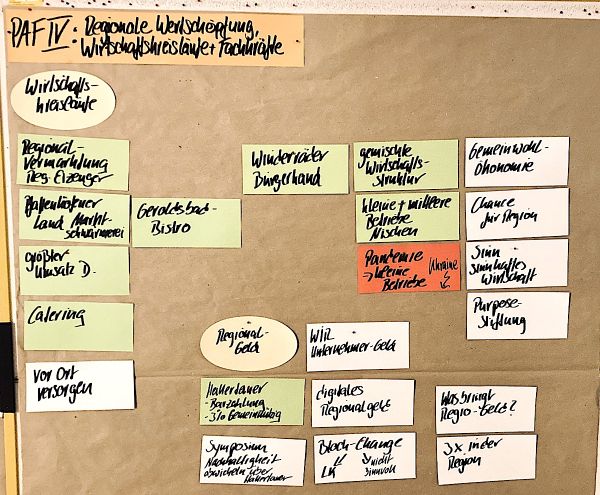 PAF IV: Regionale Wertschöpfung,
Wirtschaftskreisläufe + Fachkräfte
Wirtschafts-
kreisläufe
Regional-
Vermarktung
Reg. Erzeuger
Pfaffenhofener
Land Markt-
schwärmerei
größter
Umsatz D.
Catering
Vor Ort
versorgen
Geroldsbad-
Bistro
Windräder
Bürgerhand
gemischte
Wirtschafts-
struktur
kleine + mittlere
Betriebe
Nischen
Pandemie
→ kleine
Betriebe
Ukraine
Gemeinwohl-
Ökonomie
Chance
für Region
Sinn
sinnhaftes
Wirtschaft
Purpose-
Stiftung
Regional-
Geld
WIR
Unternehmer-Geld
Hallertauer
- Barzahlung
- 3% Gemeinnützig
digitales
Regionalgeld
Was bringt
Regio-Geld?
Symposium
Nachhaltigkeit
abwickeln über
Hallertauer
Block-Change
LK
nicht
sinnvoll
3x in der
Region